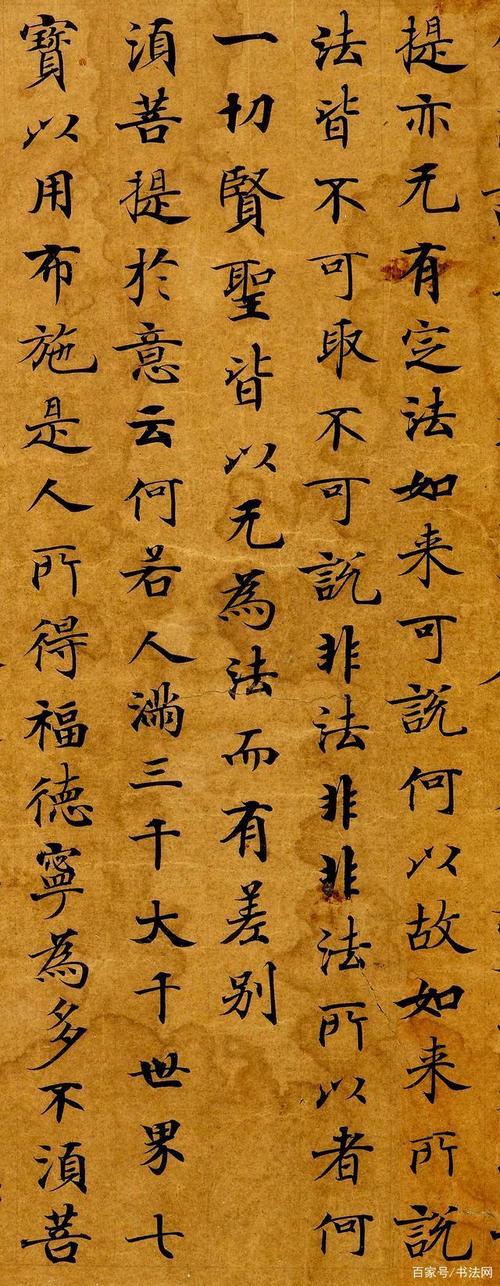 提亦无有定法如来可說何以故如来所說
法皆不可取不可說非法非非法所以者何
一切賢聖皆以无為法而有差别
須菩提於意云何若人滿三千大千世界七
寶以用布施是人所得福德寧為多不須菩
百家号/书法网